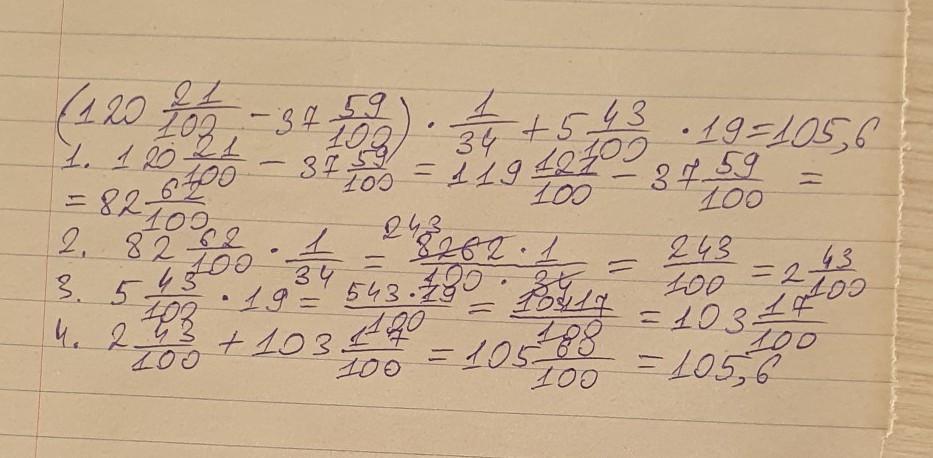 (120 21/100 - 37 59/100) · 1/34 + 5 43/100 · 19 = 105,6
1. 120 21/100 - 37 59/100 = 119 121/100 - 37 59/100 =
= 82 62/100
2. 82 62/100 · 1/34 = 243 8262 · 1/100 · 34 = 243/100 = 2 43/100
3. 5 43/100 · 19 = 543 · 19/100 = 10317/100 = 103 17/100
4. 2 43/100 + 103 17/100 = 105 60/100 = 105,6